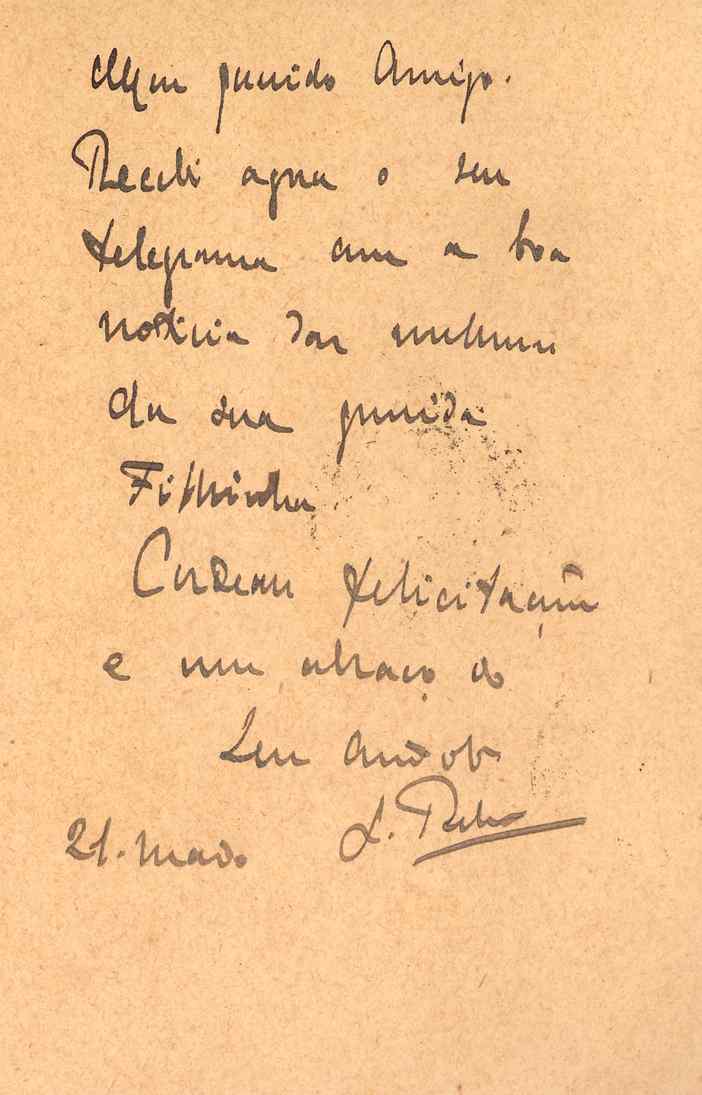 Meu querido Amigo.
Recebi agora o seu
telegrama com a boa
noticia das melhoras
da sua querida
Filhinha
Cordeais felicitações
e um abraço do
Seu
L.
21. Maio